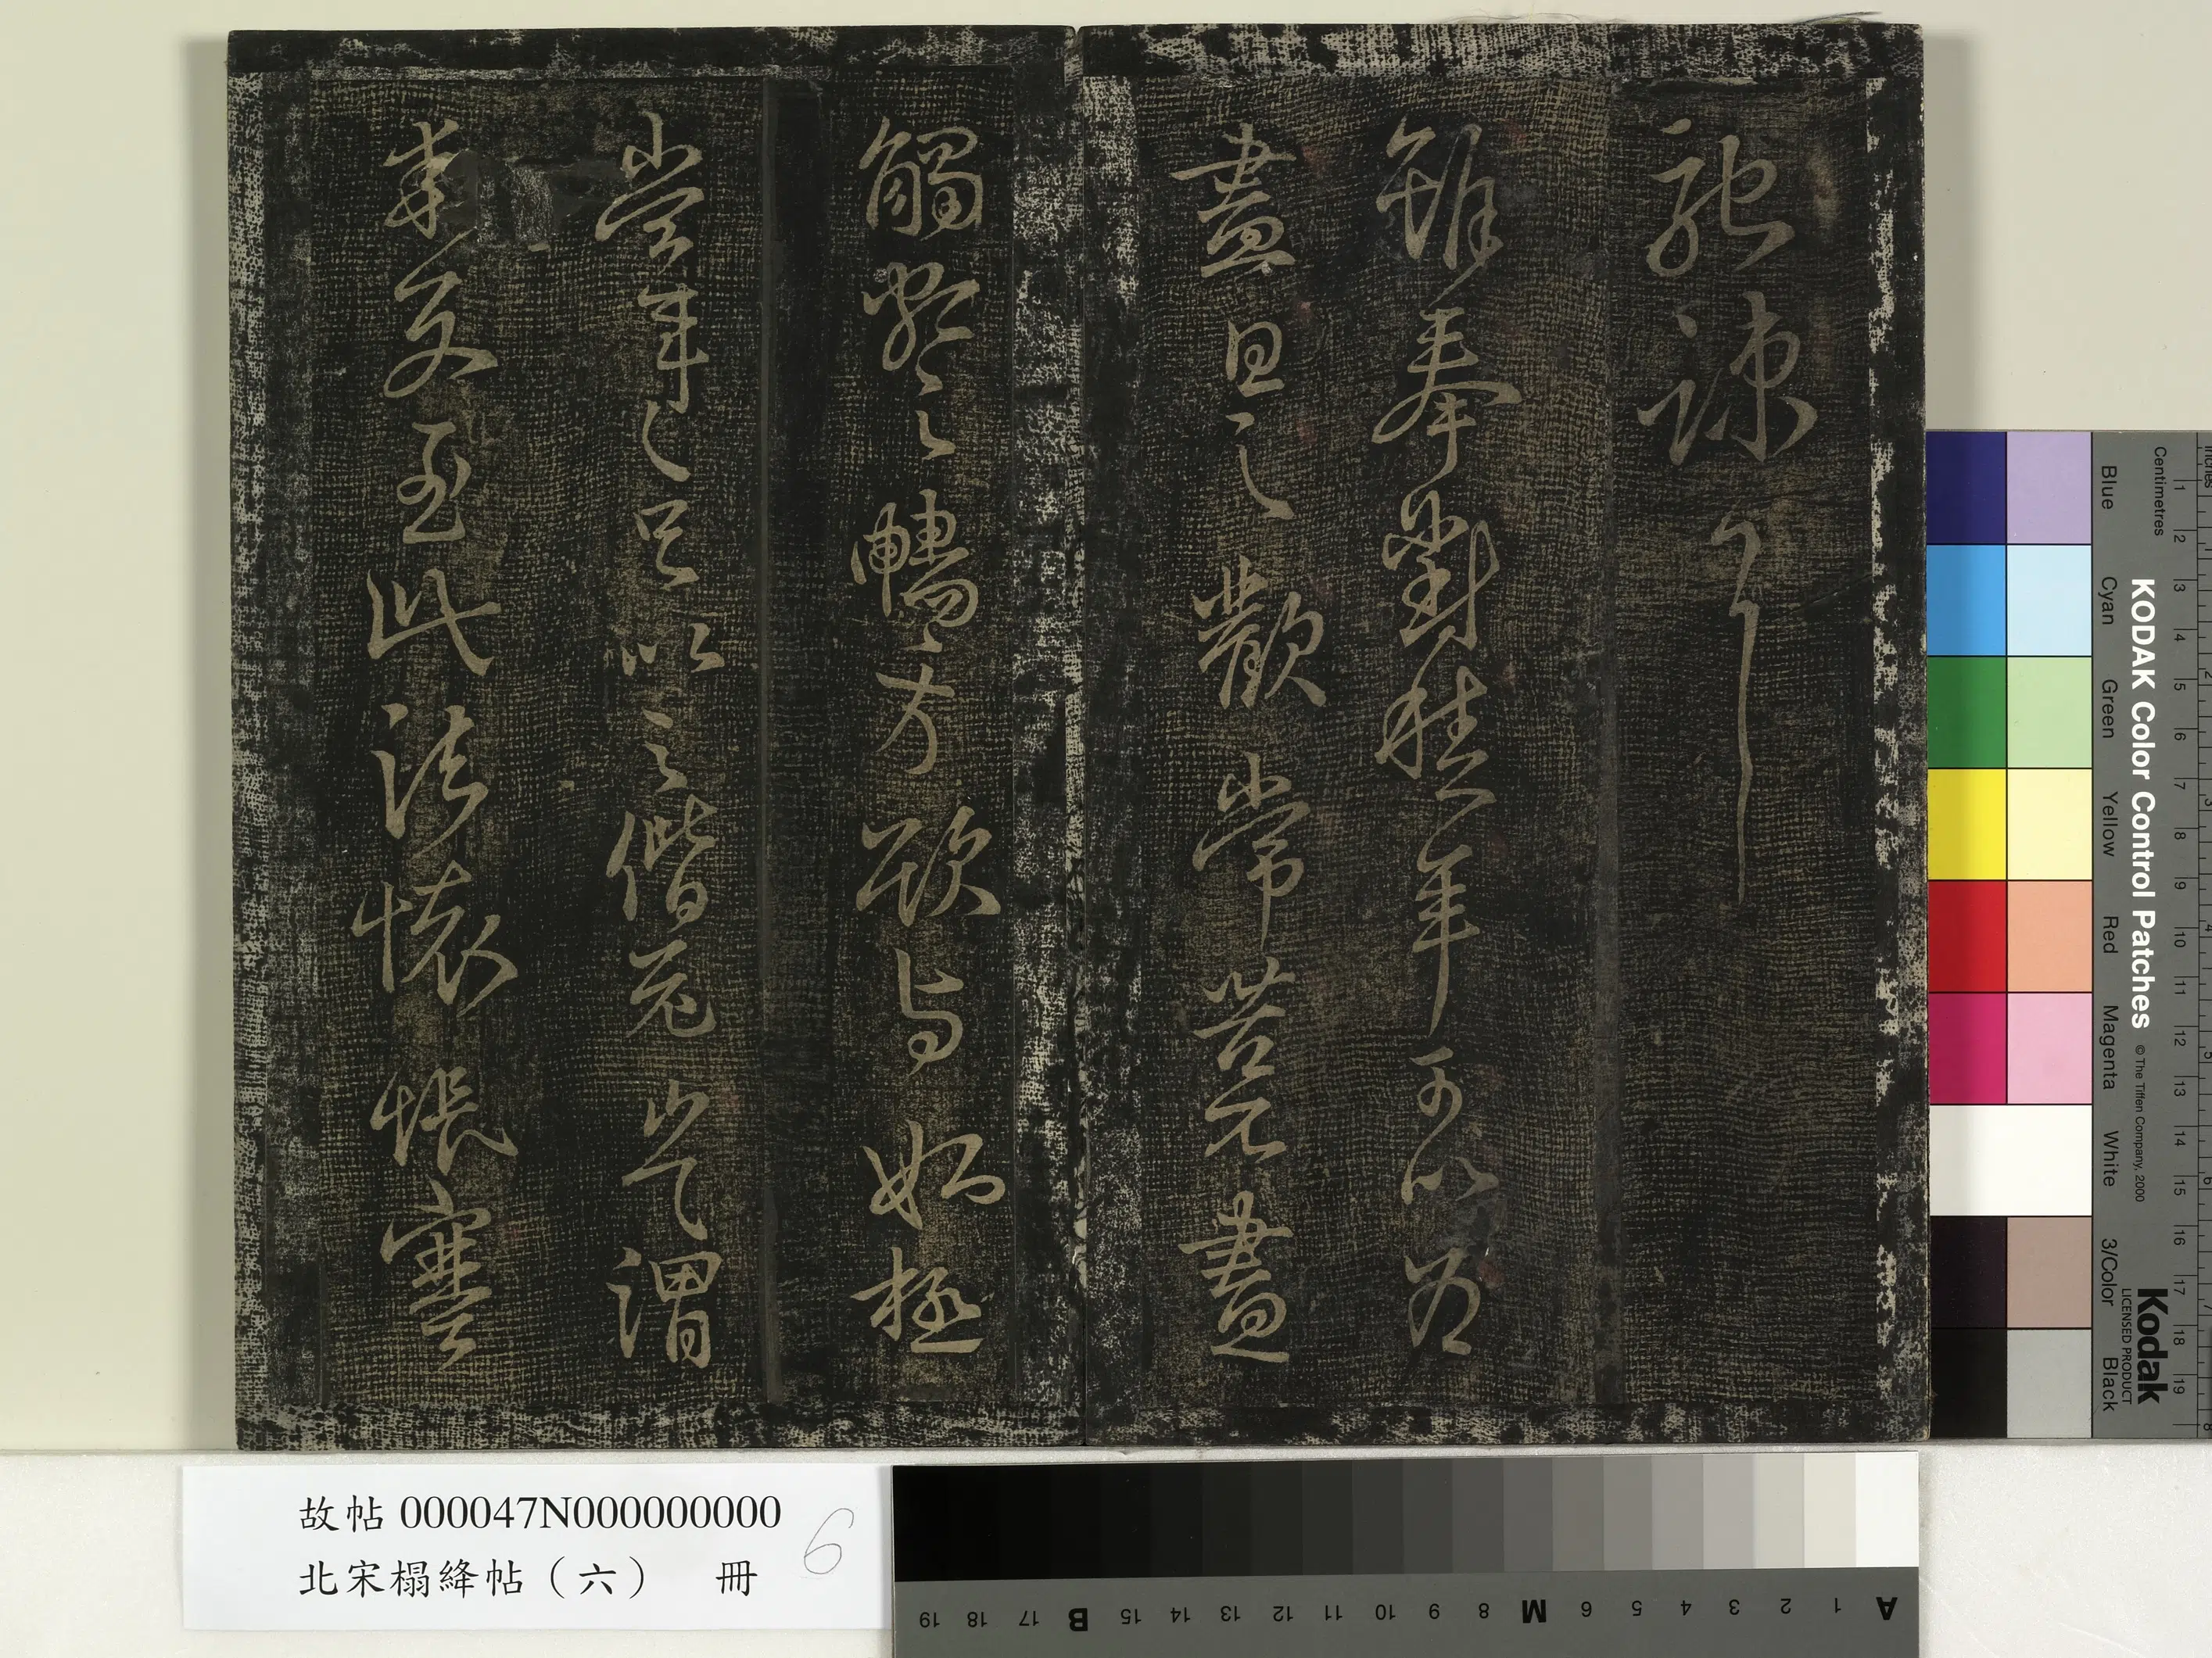 馳竦耳
雖奉對積年可以為
盡日之歡常苦不盡
觸額之暢方欲與姊極
當年之足以之偕老豈謂
乖別至此諸懷悵塞
故帖 000047N000000000
北宋榻絳帖（六） 冊
6
KODAK Color Control Patches © The Tiffen Company, 2000
Kodak
LICENSED PRODUCT
Blue Cyan Green Yellow Red Magenta White 3/Color Black
Centimetres 1 2 3 4 5 6 7 8 9 10 11 12 13 14 15 16 17 18 19
A 1 2 3 4 5 6 M 8 9 10 11 12 13 14 15 B 17 18 19